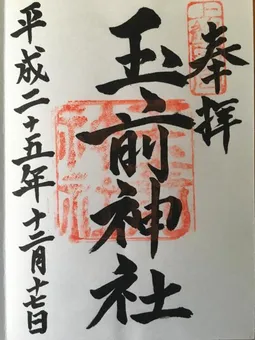 奉拝
玉前神社
平成二十五年十二月十七日